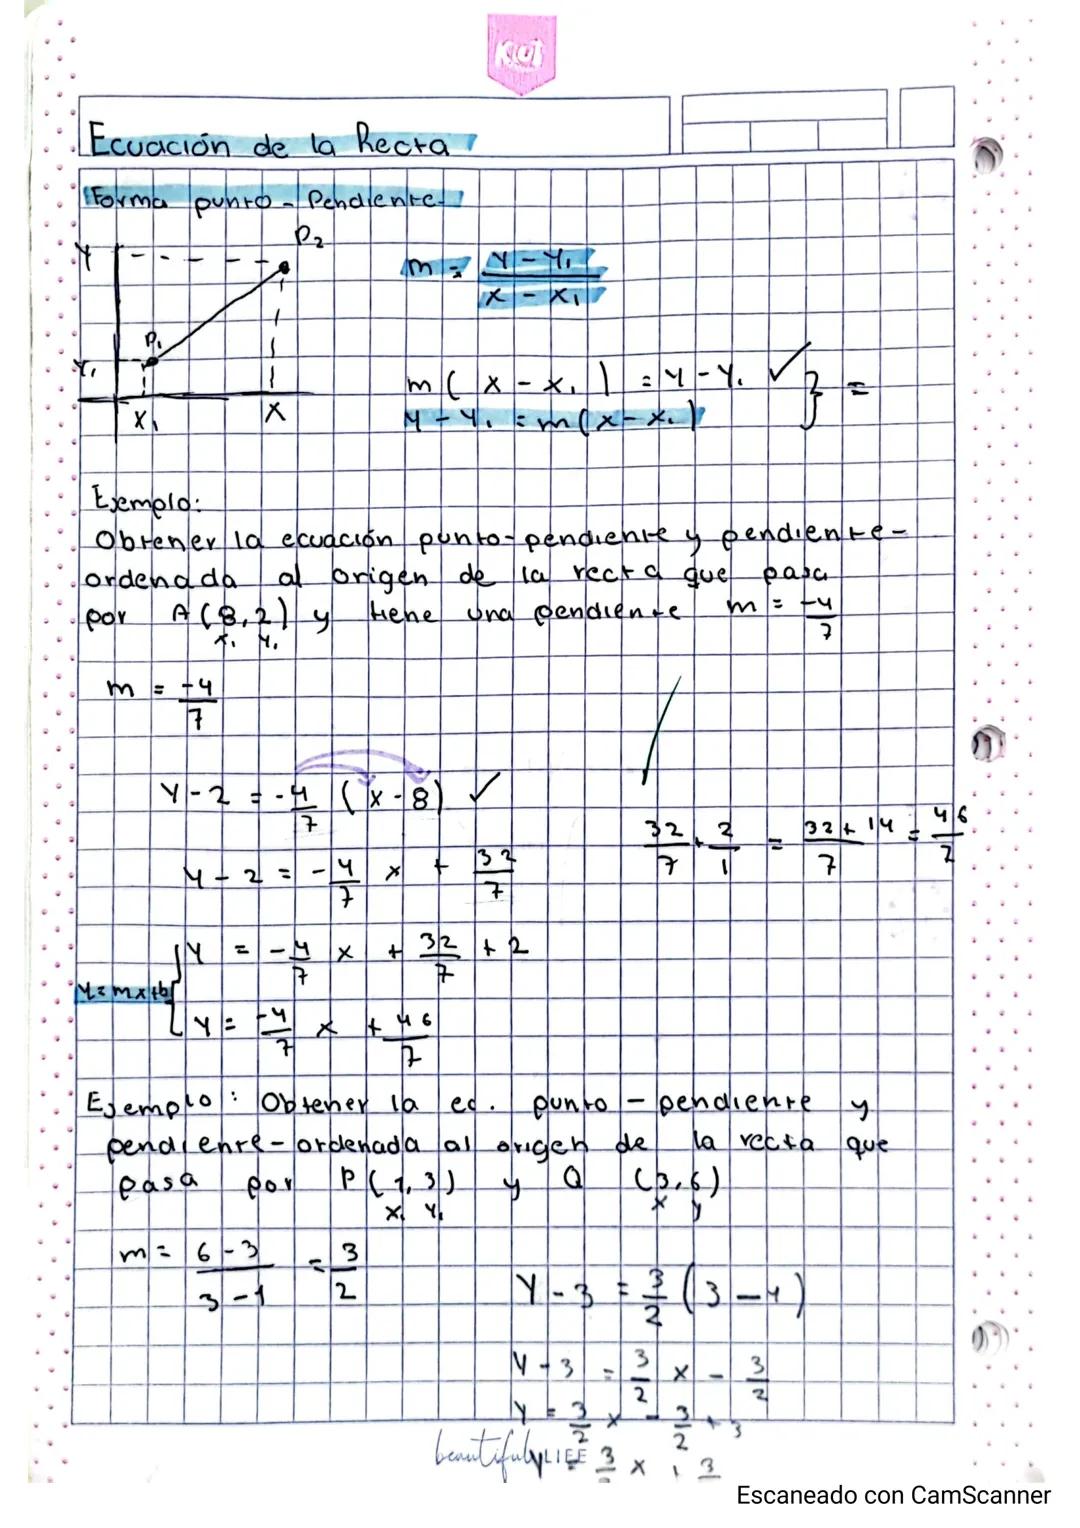 Kut
Ecuación de la Recta
Forma punto - Pendiente
P₂
Y
m = (y - y₁)/(x - x₁)
P₁
Y₁
m ( x - x₁ ) = y - y₁ ✓ } =
y - y₁ = m(x - x₁)
X₁ X
Ejemplo:
Obtener la ecuación punto-pendiente y pendiente-
ordenada al origen de la recta que pasa
por A (8,2) y tiene una pendiente m = -4/7
x₁ y₁
m = -4/7
y - 2 = -4/7 (x - 8) ✓
32/7 + 2/1 = 32+14/7 = 46/7
y - 2 = -4/7 x + 32/7
y = -4/7 x + 32/7 + 2
y = mx+b
y = -4/7 x + 46/7
Ejemplo: Obtener la ec. punto - pendiente y
pendiente-ordenada al origen de la recta que
pasa por P(1,3) y Q (3,6)
x₁ y₁ x y
m = 6-3/3-1 = 3/2
y - 3 = 3/2 (3 - 1)
y - 3 = 3/2 x - 3/2
y = 3/2 x - 3/2 + 3
beautifuly LIFE
= 3 x 3
Escaneado con CamScanner